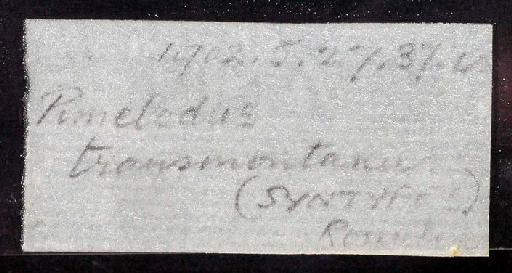 1902.5.27.37.
Pimelodus
transmontanus
(SYNTYPE)